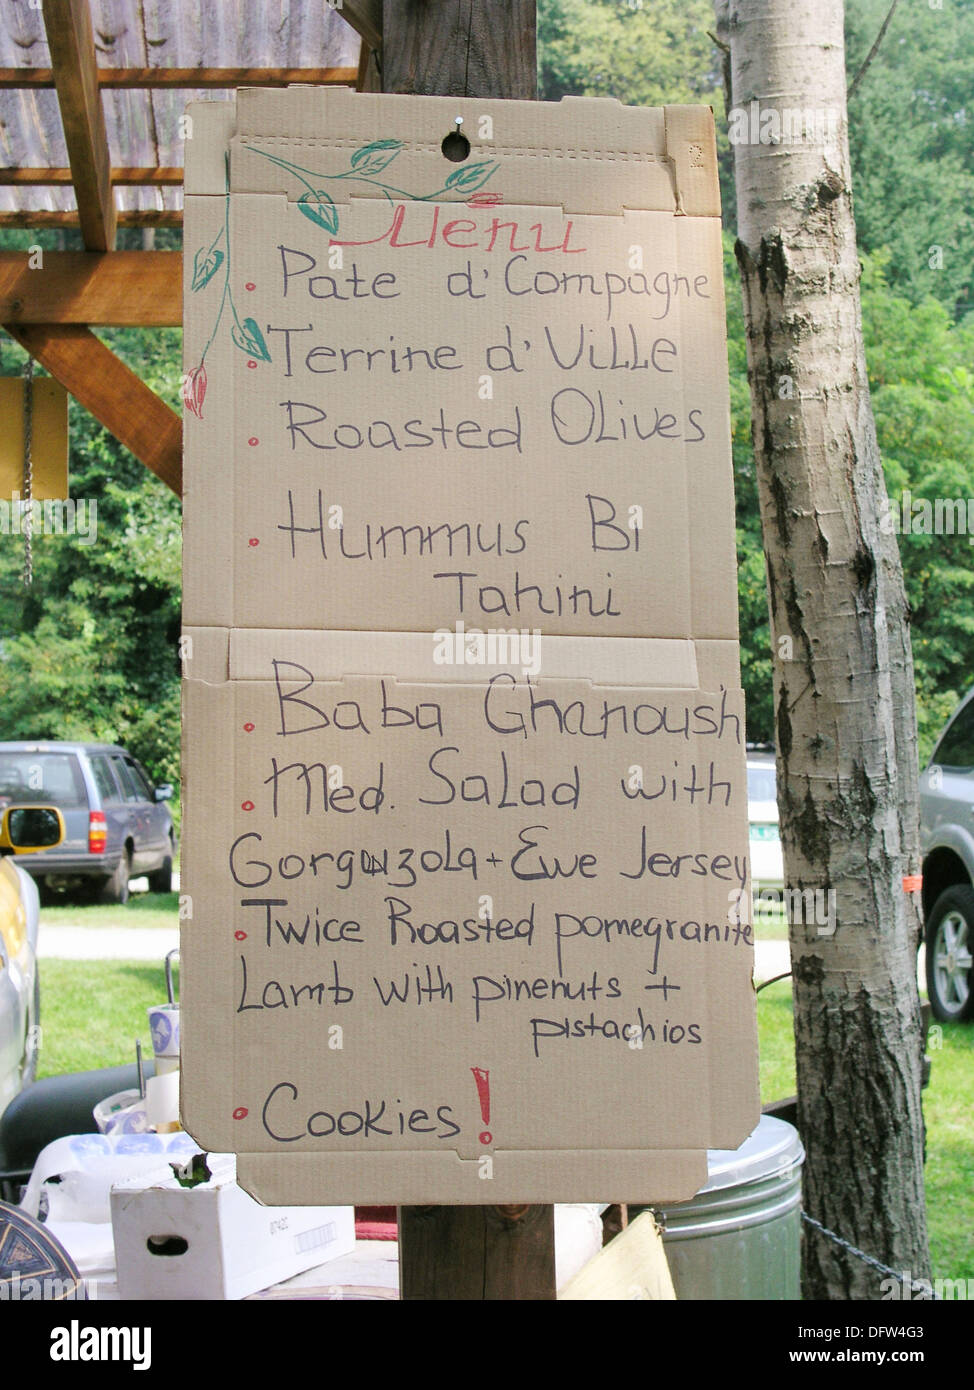 2
Menu
Pate d'Compagne
Terrine d'Ville
Roasted Olives
Hummus Bi
Tahini
Baba Ghanoush
Med. Salad with
Gorgonzola + Ewe Jersey
Twice Roasted pomegranite
Lamb with pinenuts +
pistachios
Cookies!
alamy
Image ID: DFW4G3
www.alamy.com